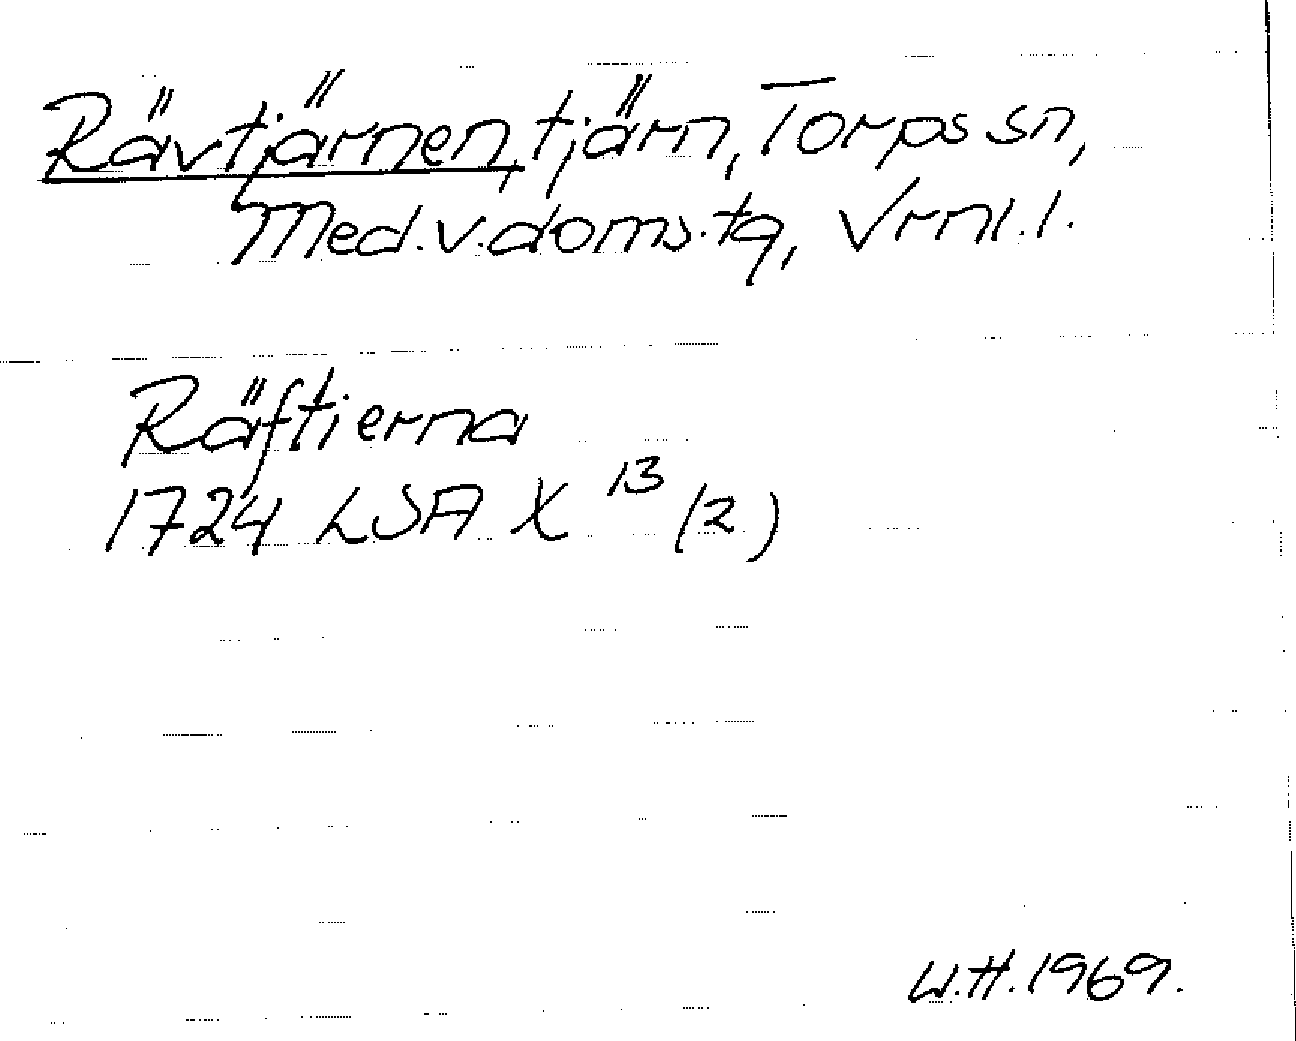 Rävtjärnen, tjärn, Torps sn,
Med.v.doms.tg, Vrml.l.
Räftierna
1724 LSA X 13 (2)
W.H. 1969.